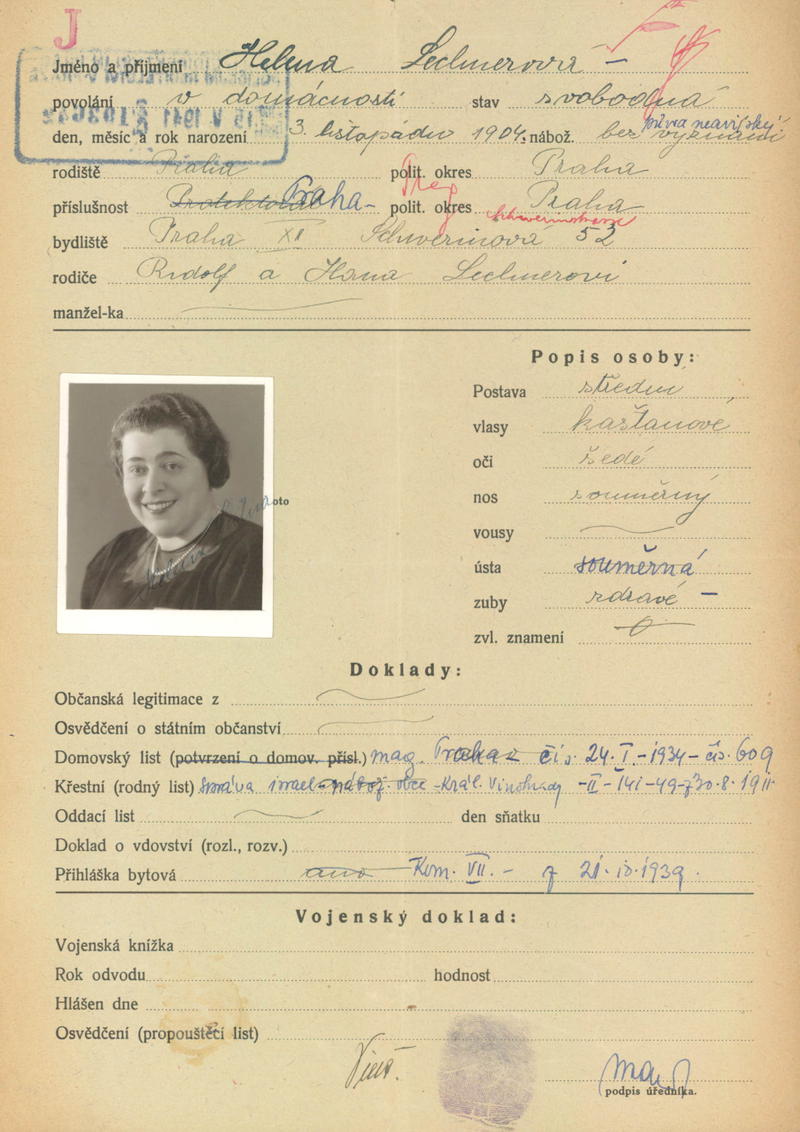 J
Jméno a příjmení Helena Lechnerová –
povolání v domácnosti stav svobodná
den, měsíc a rok narození 3. listopadu 1904. nábož. bez vyznání
rodiště Praha polit. okres Praha
příslušnost Protektorát Praha – polit. okres Praha
bydliště Praha XII Schwerinova 52
rodiče Rudolf a Hana Lechnerovi
manžel-ka
Popis osoby:
Postava střední
vlasy kaštanové
oči šedé
nos souměrný
vousy
ústa souměrná
zuby zdravé –
zvl. znamení
oto
Doklady:
Občanská legitimace z
Osvědčení o státním občanství
Domovský list (potvrzení o domov. přísl.) mag. Praha čís. 24. I. – 1934 – čís. 609
Křestní (rodný list) Správa israel. nábož. obce – Král. Vinohrady – II – 141 – 49 – z 30. 8. 1911
Oddací list den sňatku
Doklad o vdovství (rozl., rozv.)
Přihláška bytová ano Kom. VII. – z 21. 10. 1939.
Vojenský doklad:
Vojenská knížka
Rok odvodu hodnost
Hlášen dne
Osvědčení (propouštěcí list)
podpis úředníka.